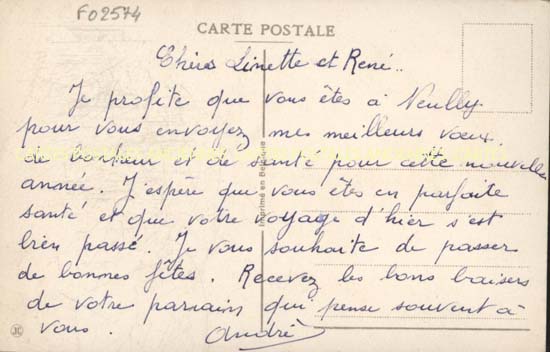 F02574
CARTE POSTALE
Chers Linette et René..
Je profite que vous êtes à Neully
pour vous envoyez mes meilleurs vœux
de bonheur et de santé pour cette nouvelle
année. J'espère que vous êtes en parfaite
santé et que votre voyage d'hier s'est
bien passé. Je vous souhaite de passer
de bonnes fêtes. Recevez les bons baisers
de votre parrain qui pense souvent à
vous.
André
Imprimé en Belgique